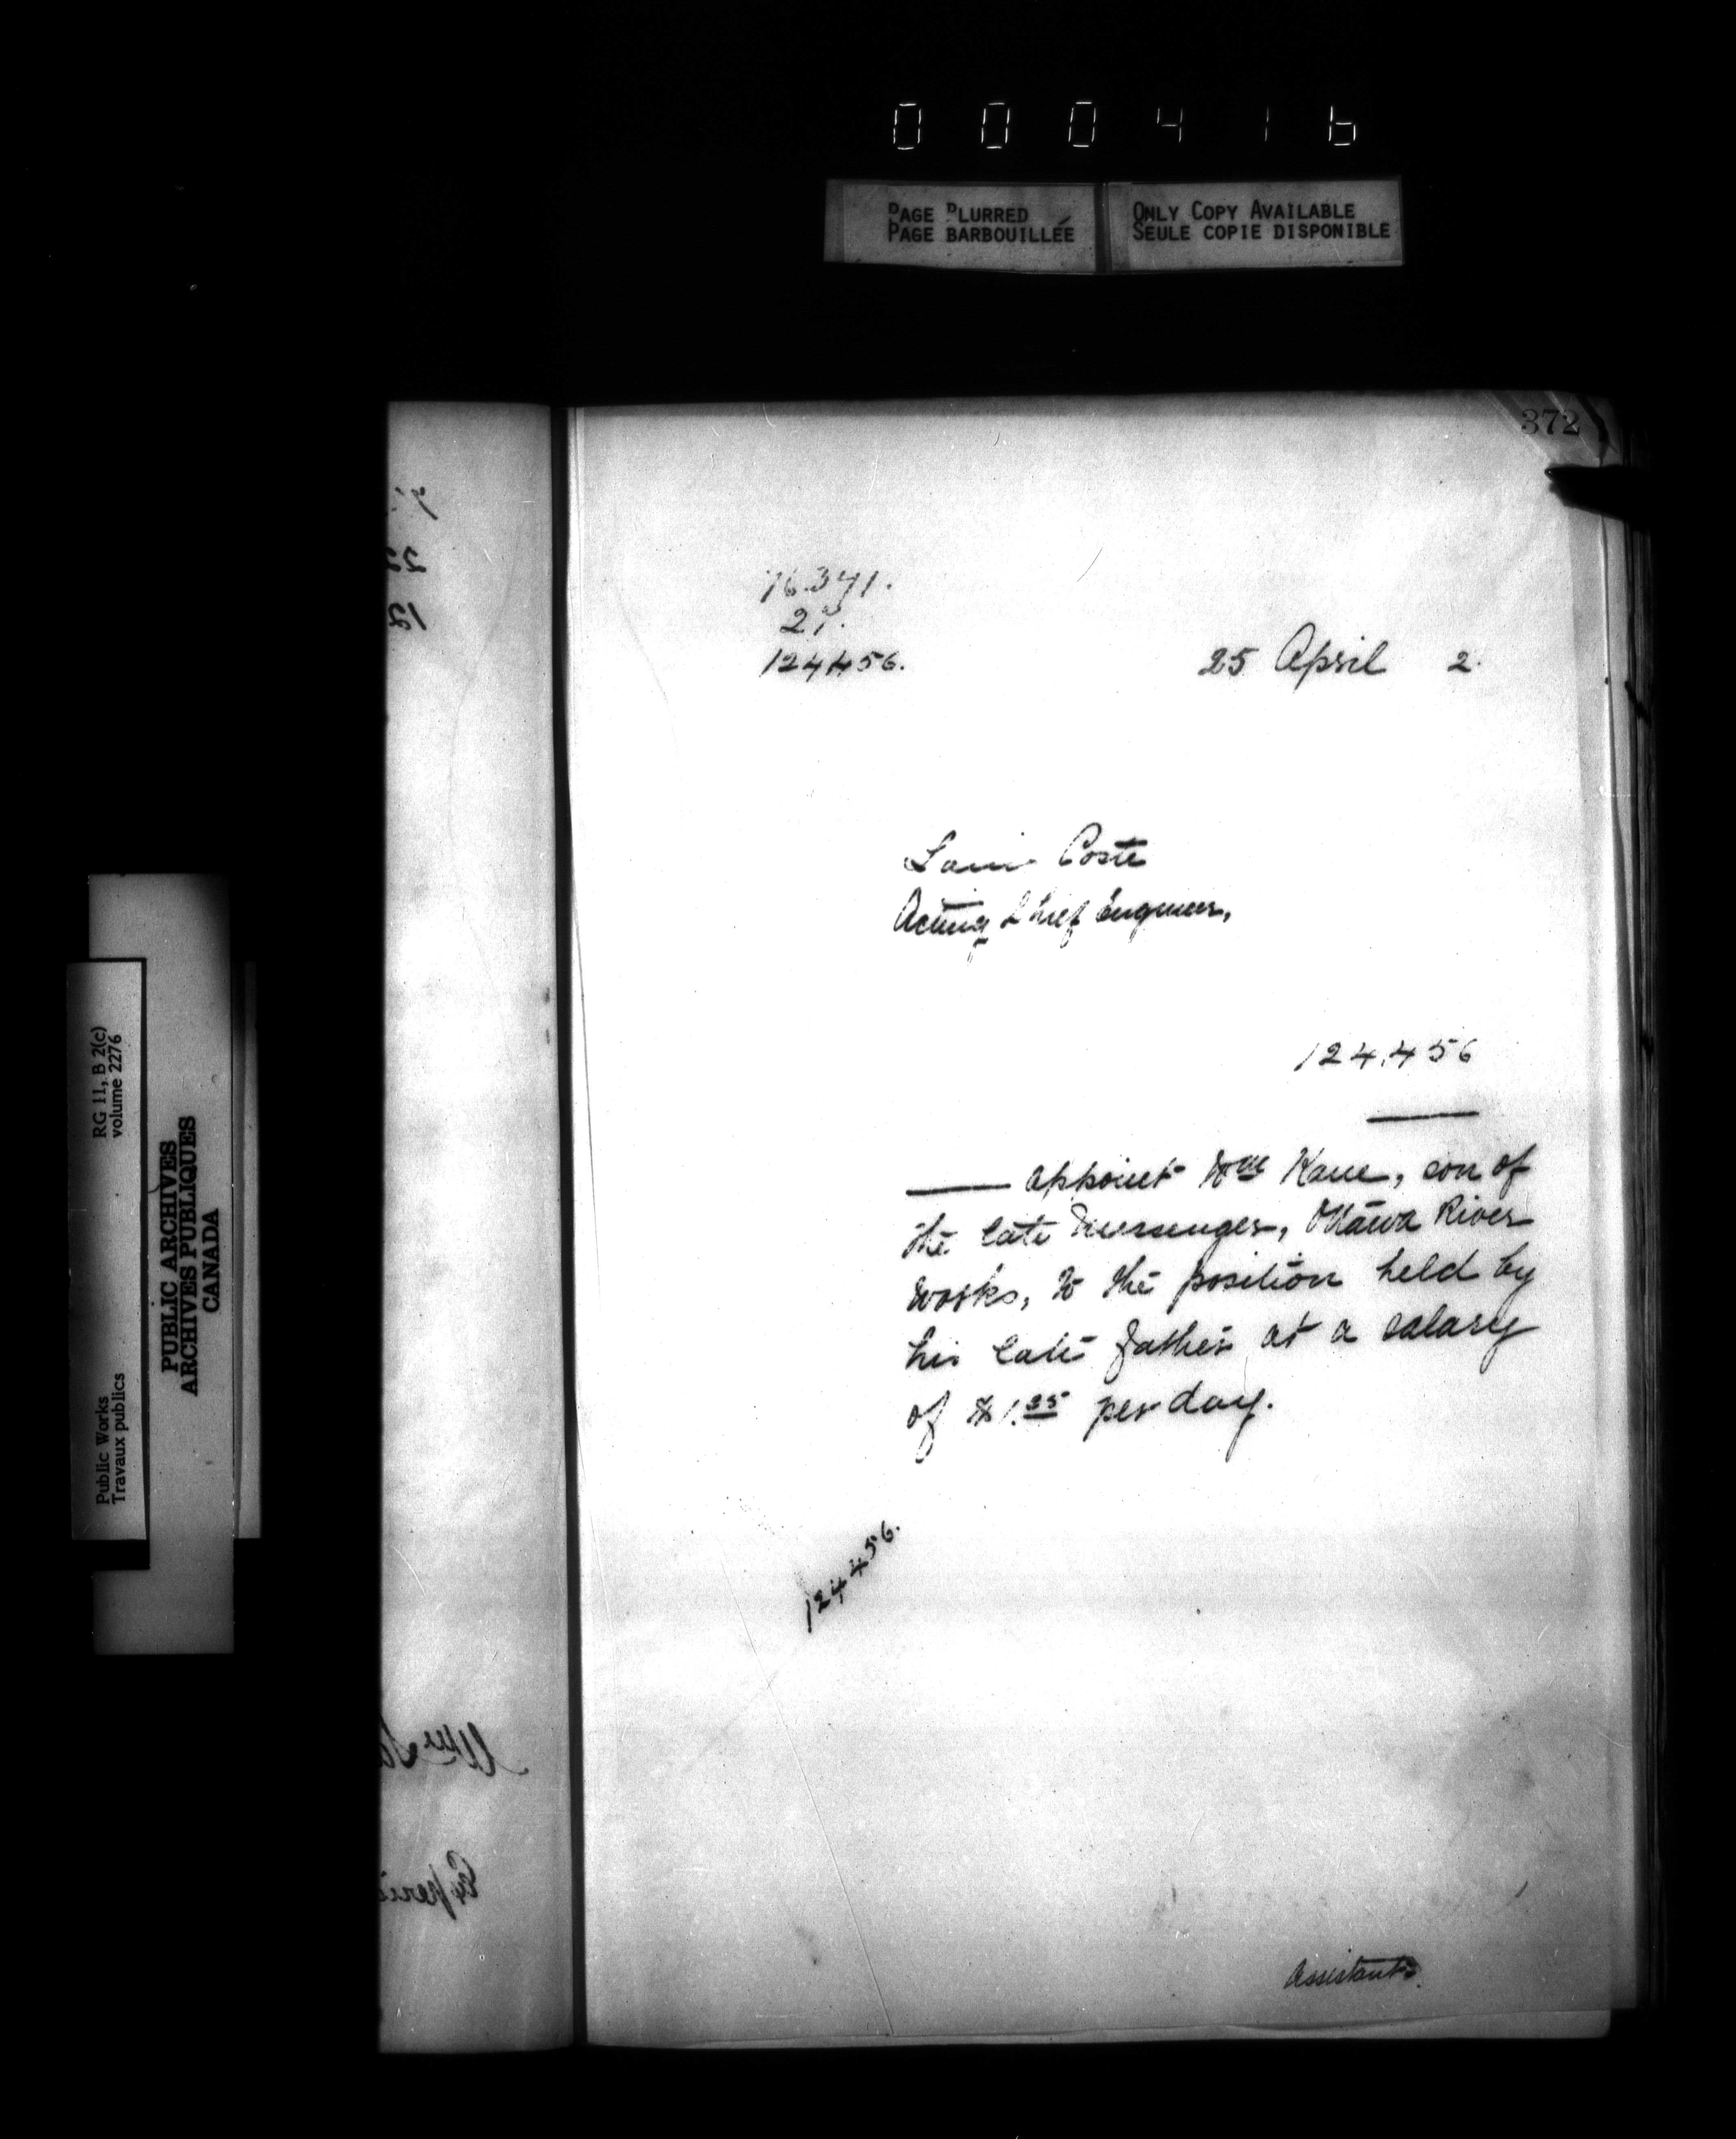 000416
PAGE BLURRED
PAGE BARBOUILLÉE
ONLY COPY AVAILABLE
SEULE COPIE DISPONIBLE
372
76.341.
27.
124456.
25 April 2.
Louis Coste
Acting Chief Engineer,
124,456
appoint Wm Kane, son of
the late Messenger, Ottawa River
Works, to the position held by
his late father at a salary
of $1.25 per day.
124456.
Assistant
RG 11, B 2(c)
volume 2276
Public Works
Travaux publics
PUBLIC ARCHIVES
ARCHIVES PUBLIQUES
CANADA